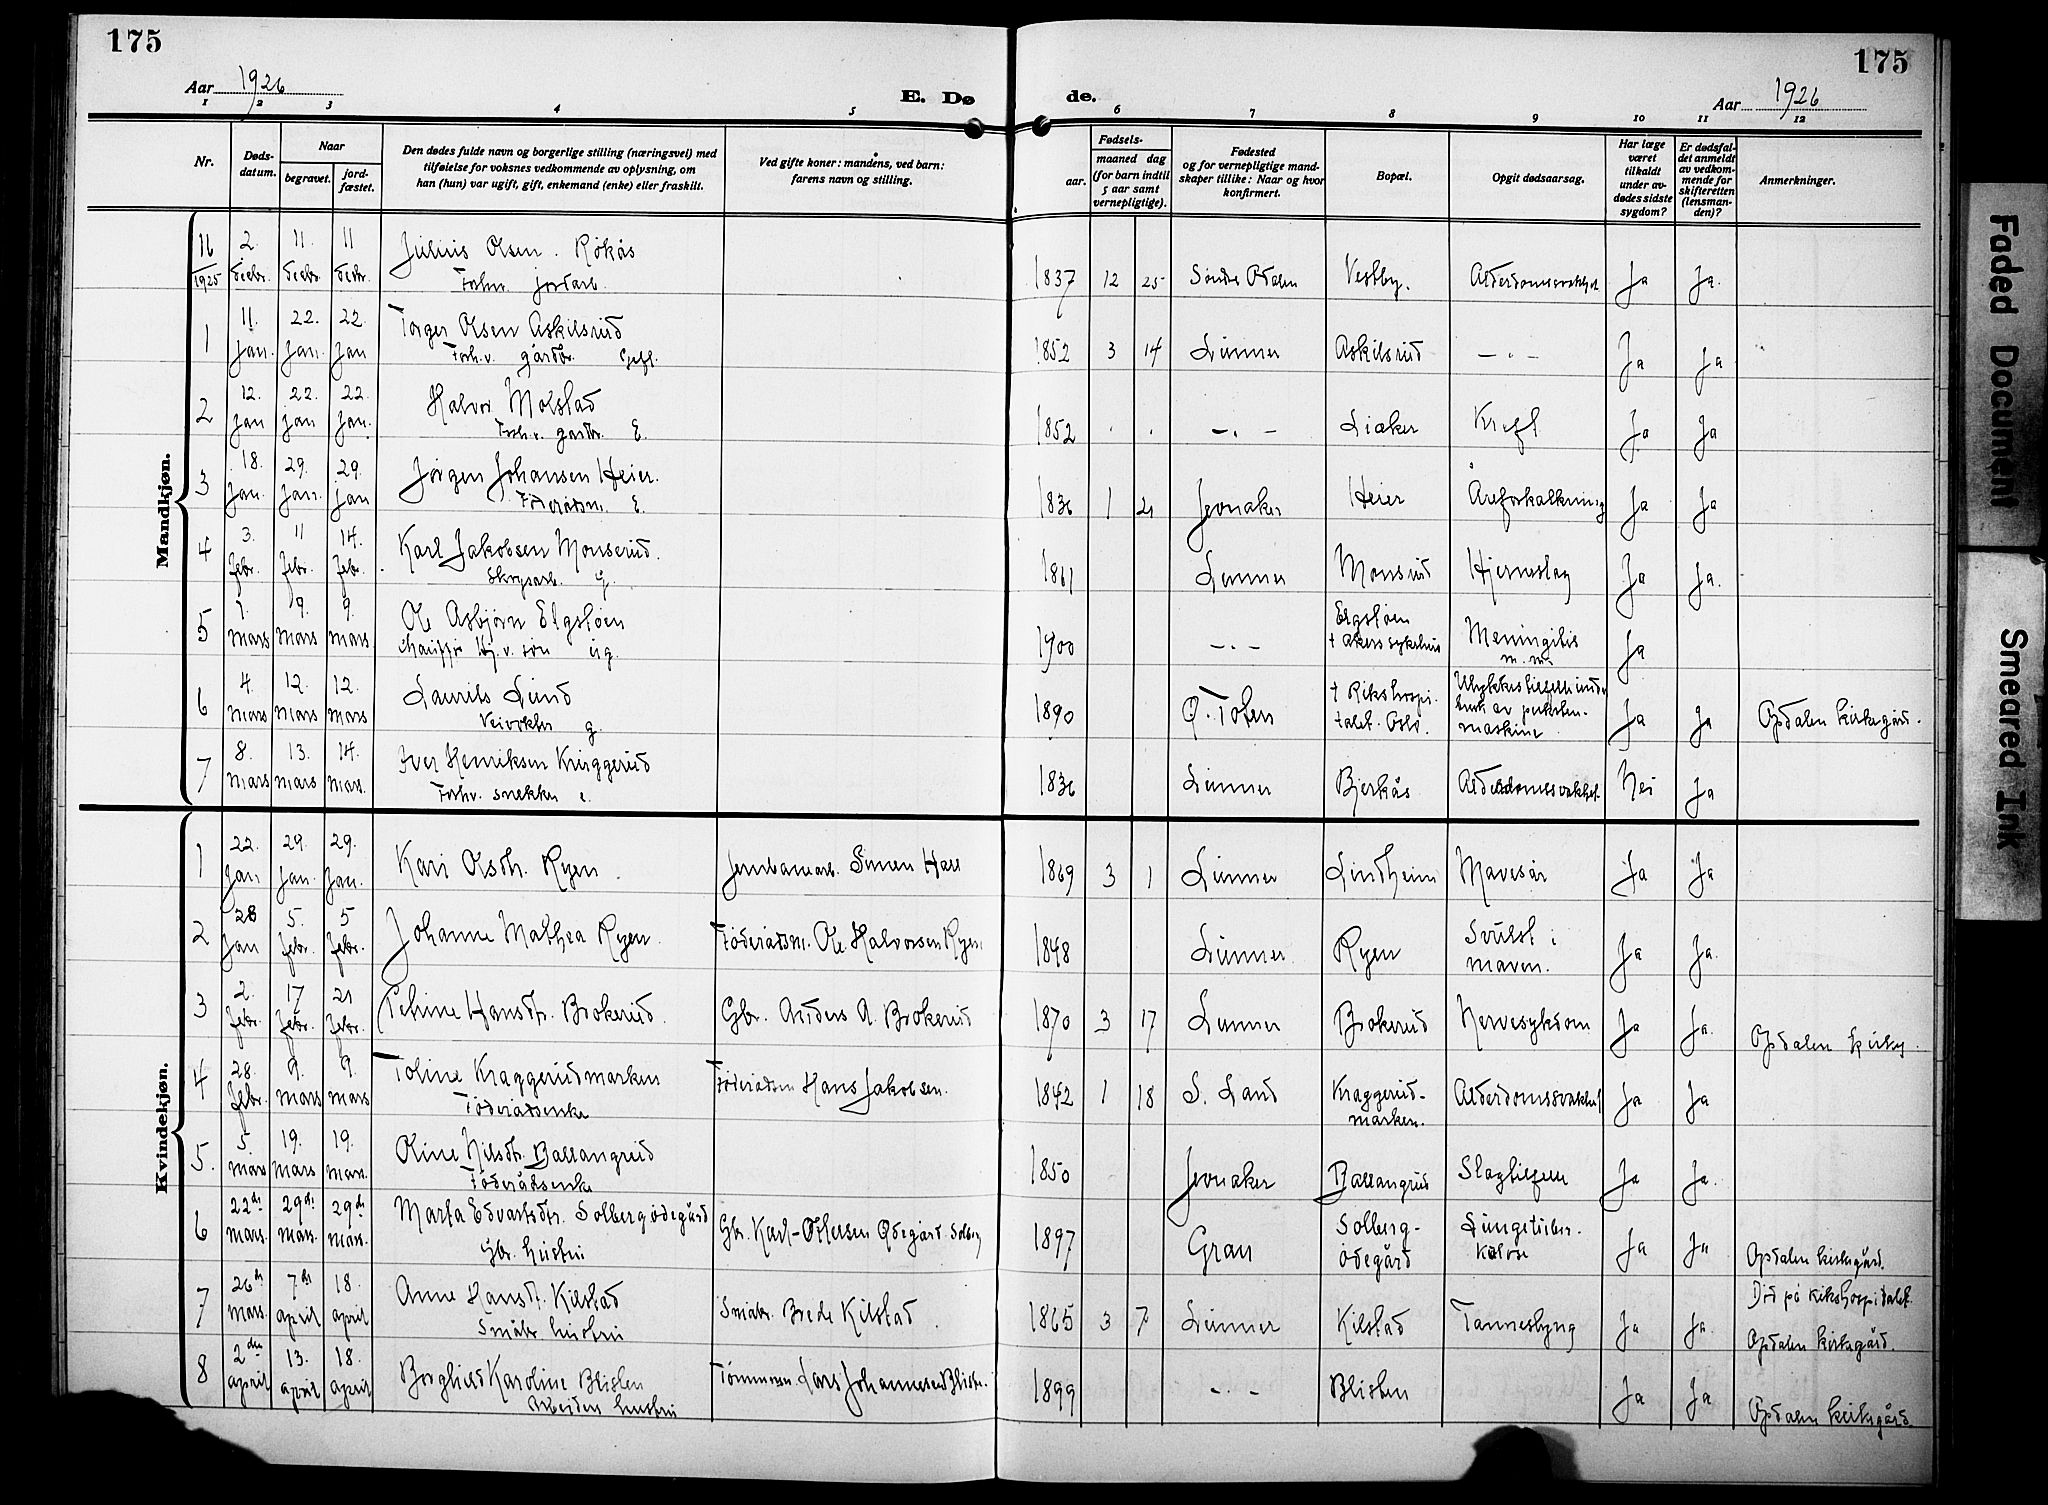 175
175
Aar 1926
E. Dø
de.
Aar 1926
1 2 3 4 5 6 7 8 9 10 11 12
Nr. Døds-datum. Naar begravet. jord-fæstet. Den dødes fulde navn og borgerlige stilling (næringsvei) med tilføielse for voksnes vedkommende av oplysning, om han (hun) var ugift, gift, enkemand (enke) eller fraskilt. Ved gifte koner: mandens, ved barn: farens navn og stilling. Fødsels- aar. maaned dag (for barn indtil 5 aar samt vernepligtige). Fødested og for vernepligtige mand-skaper tillike: Naar og hvor konfirmert. Bopæl. Opgit dødsaarsag. Har læge været tilkaldt under av-dødes sidste sygdom? Er dødsfal-det anmeldt av vedkom-mende for skifteretten (lensman-den)? Anmerkninger.
Mandkjøn.
11/1925 2. decbr. 11. decbr. 11 decbr. Julius Olsen. Rökås Forhv. jordarb. 1837 12 25 Søndre Odalen Vestby. Alderdomssvakhet Ja Ja.
1 11. Jan. 22. Jan. 22. Jan Torger Olsen Askilsrud Forh.v. gårdbr. Gift. 1852 3 14 Lunner Askilsrud — " — Ja Ja
2 12. Jan 22. Jan 22. Jan. Halvor Molstad Forh.v. gårdbr. E. 1852 — " — Liaker Kreft Ja Ja
3 18. Jan. 29. Jan. 29. Jan Jørgen Johansen Heier. Föderådsm. E. 1836 1 21 Jevnaker Heier Åreforkalkning Ja Ja
4 3. Febr. 11 Febr. 14. Febr. Karl Jakobsen Monserud. Skogsarb. G. 1861 Lunner Monsrud Hjerneslag Ja Ja.
5 1. mars 9. mars 9. mars Ole Asbjørn Elgstøen ug. 1900 — " — Elgstøen † Akers sykehus Meningitis m.m. Ja
6 4. mars 12. mars 12. mars Laurits Lund Veivokter g. 1890 Ø. Toten † Rikshospi-talet. Oslo. maskine Ja Ja Opdalen kirkegård.
7 8. mars 13. mars 14. mars. Iver Henriksen Kraggerud Forhv. snekker e. 1836 Lunner Bjerkås Alderdomssvakhet. Nei Ja
Kvindekjøn.
1 22. Jan 29. Jan. 29. Jan. Kari Olsdtr. Ryen. Jernbanearb. Simen Hall 1869 3 1 Lunner Lindheim Mavesår Ja Ja
2 28 Jan 5. Febr. 5 Febr. Johanne Mathea Ryen. Föderådsm. Ole Halvorsen Ryen. 1848 Lunner Ryen Svulst i maven. Ja Ja.
3 2. Febr. 17 Febr. 21 Febr. Petrine Hansdtr. Brokerud. Gbr. Anders A. Brokerud 1870 3 17 Lunner Brokerud Nervesykdom Ja Ja. Opdalen kirkeg.
4 28. Febr. 9. mars 9. mars Toline Kraggerudmarken Föderådsenke Föderådsm Hans Jakobsen. 1842 1 18 S. Land Kraggerud-marken. Alderdomssvakhet Ja Ja
5. 5. mars 19. mars 19. mars. Oline Nilsdtr. Ballangrud Föderådsenke 1850 Jevnaker Ballangrud Slagtilfelle Ja Ja.
6 22de mars. 29de mars. 29de mars. Marta Edvartsdtr. Solbergödegård Gbr. hustru Gbr. Karl Ottersen Ødegård Solberg 1897 Gran Solberg-ödegård Lungetuber-kulose Ja Ja Opdalen kirkegård.
7 26de mars. 7de april 18. april Anne Hansdt. Kilstad Småbr. hustru Småbr. Brede Kilstad. 1865 3 7 Lunner Kilstad Tannesbyng Ja Ja. Död på Rikshospitalet. Opdalen kirkegård.
8 2den april 13. april 18. april Borghild Karoline Blisten Arbeiders hustru Lars Johannesen Blisten. 1899 — " — Blisten Ja Ja Opdalen kirkegård.
Faded Document
Smeared Ink